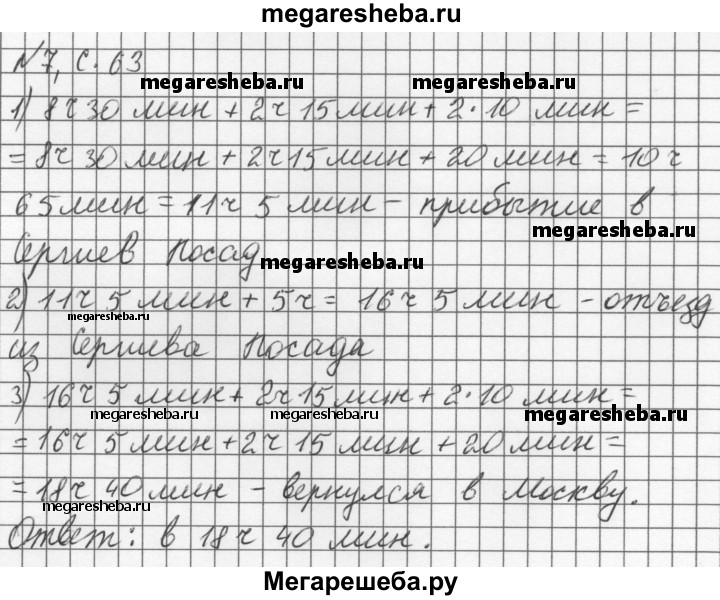 megaresheba.ru
№7, с. 63
megaresheba.ru megaresheba.ru
1) 8ч 30 мин + 2ч 15 мин + 2·10 мин =
= 8ч 30 мин + 2ч 15 мин + 20 мин = 10ч
65 мин = 11ч 5 мин – прибытие в
megaresheba.ru
Сергиев Посад
megaresheba.ru
2) 11ч 5 мин + 5ч = 16ч 5 мин – отъезд
megaresheba.ru
из Сергиева Посада
3) 16ч 5 мин + 2ч 15 мин + 2·10 мин =
megaresheba.ru megaresheba.ru megaresheba.ru
= 16ч 5 мин + 2ч 15 мин + 20 мин =
= 18ч 40 мин – вернулся в Москву.
megaresheba.ru
Ответ: в 18ч 40 мин.
Мегарешеба.ру